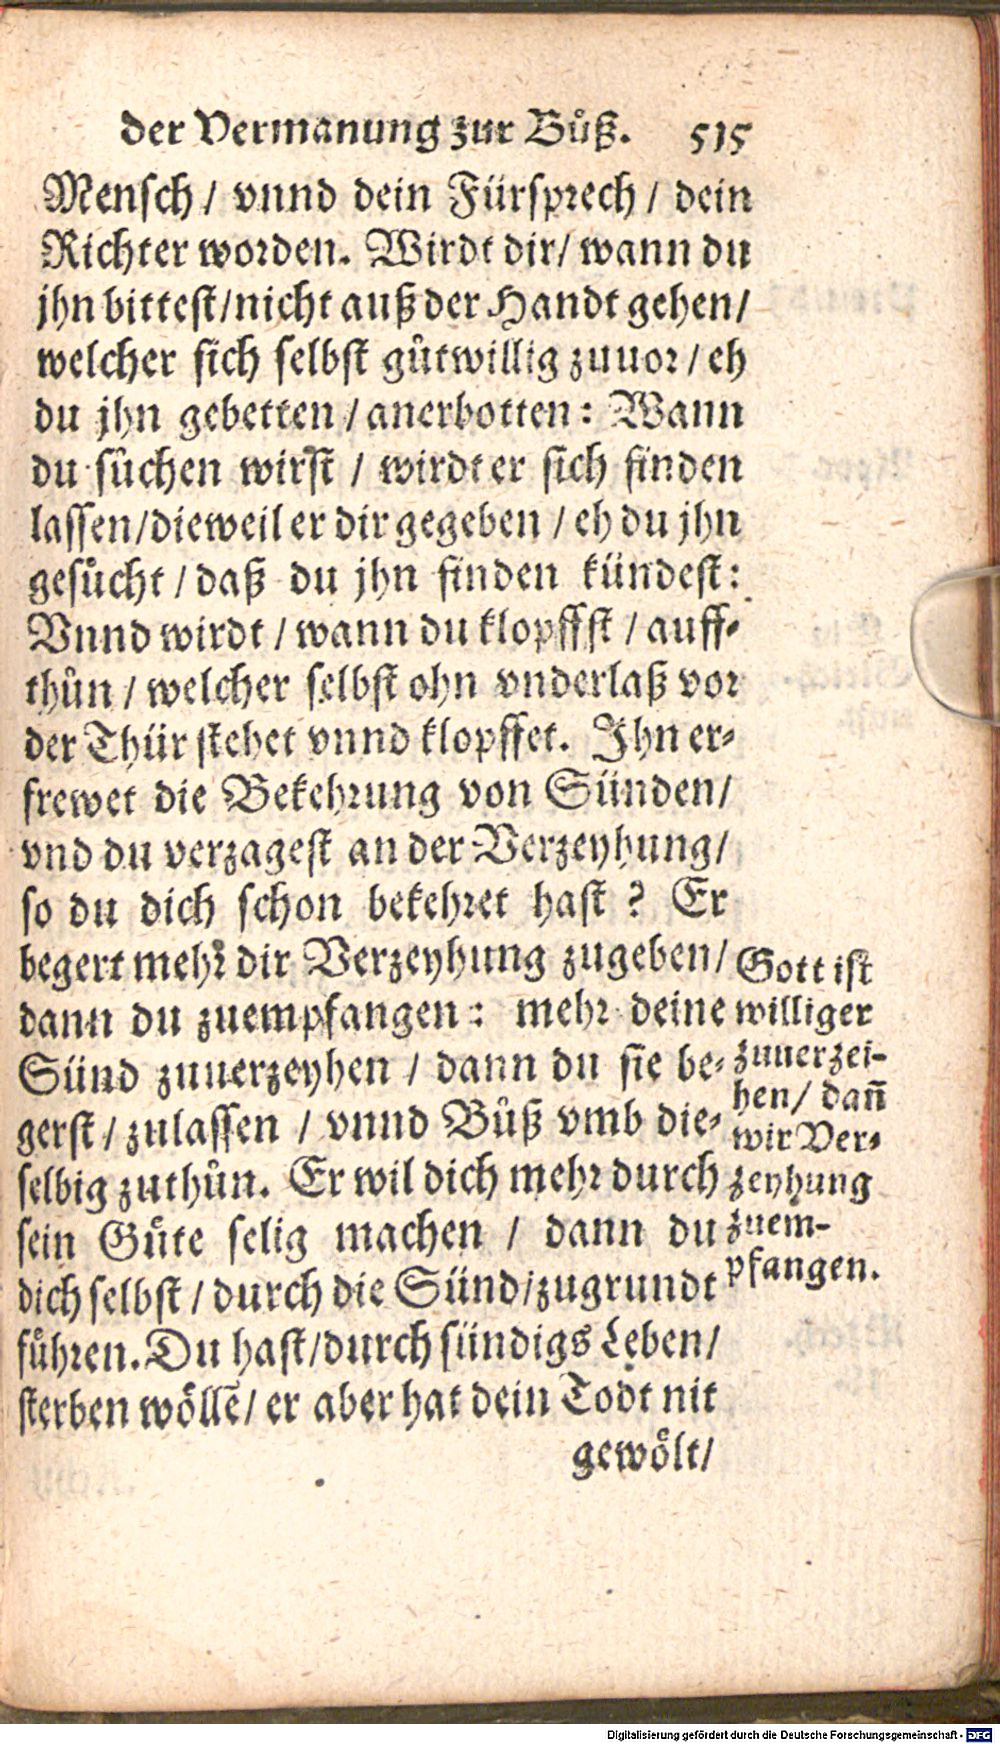 der Vermanung zur Bůß. 515
Mensch / vnnd dein Fürsprech / dein
Richter worden. Wirdt dir / wann du
jhn bittest / nicht auß der Handt gehen /
welcher sich selbst gůtwillig zuuor / eh
du jhn gebetten / anerbotten: Wann
du sůchen wirst / wirdt er sich finden
lassen / dieweil er dir gegeben / eh du jhn
gesůcht / daß du jhn finden kündest:
Vnnd wirdt / wann du klopffst / auff-
thůn / welcher selbst ohn vnderlaß vor
der Thür stehet vnnd klopffet. Ihn er-
frewet die Bekehrung von Sünden /
vnd du verzagest an der Verzeyhung /
so du dich schon bekehret hast ? Er
begert mehr dir Verzeyhung zugeben /
dann du zuempfangen: mehr deine
Sünd zuuerzeyhen / dann du sie be-
gerst / zulassen / vnnd Bůß vmb die-
selbig zuthůn. Er wil dich mehr durch
sein Gůte selig machen / dann du
dich selbst / durch die Sünd / zugrundt
fůhren. Du hast / durch sündigs Leben /
sterben wöllē / er aber hat dein Todt nit
gewölt /
Gott ist
williger
zuuerzei-
hen / dañ
wir Ver-
zeyhung
zuem-
pfangen.
Digitalisierung gefördert durch die Deutsche Forschungsgemeinschaft - DFG